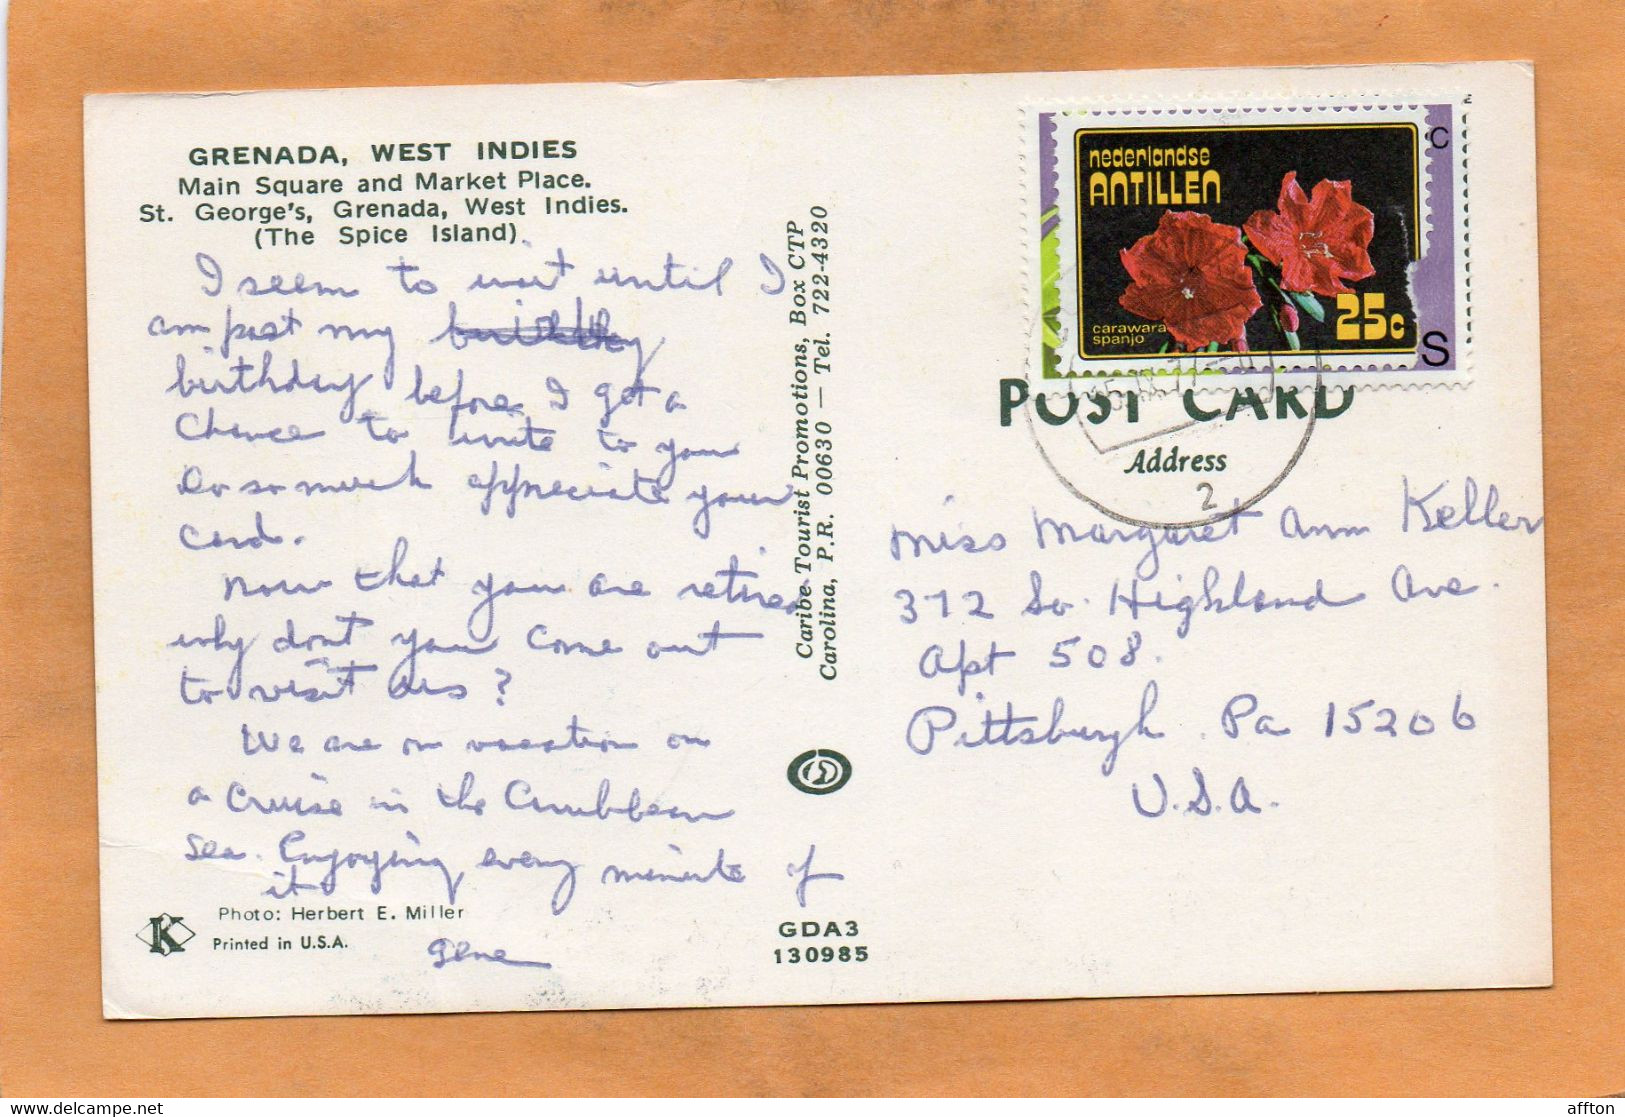 GRENADA, WEST INDIES
Main Square and Market Place.
St. George's, Grenada, West Indies.
(The Spice Island)
I seem to wait until I
am past my
birthday before I get a
chance to write to you
Do so much appreciate your
card.
Now that you are retired
why don't you come out
to visit us?
We are on vacation on
a cruise in the Carribbean
sea. Enjoying every minute of
it
Gene
Photo: Herbert E. Miller
K
Printed in U.S.A.
Caribe Tourist Promotions, Box CTP
Carolina, P.R. 00630 — Tel. 722-4320
GDA3
130985
nederlandse
ANTILLEN
carawara
spanjo
25c
C
S
POST CARD
Address
2
Miss Margaret Ann Keller
372 So. Highland Ave.
Apt 508.
Pittsburgh, Pa 15206
U.S.A.
affton